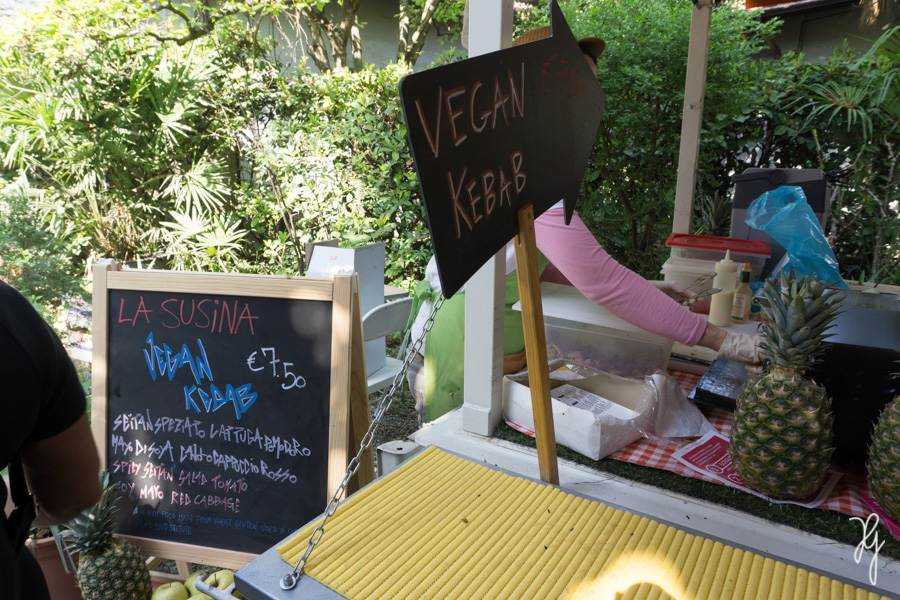 VEGAN
KEBAB
LA SUSINA
VEGAN
KEBAB
€7.50
SEITAN SPEZIATO LATTUGA POMODORO
MAYO DI SOYA CAVOLO CAPPUCCIO ROSSO
SPICY SEITAN SALAD TOMATO
SOY MAYO RED CABBAGE
FOOD MADE FROM WHEAT GLUTEN USED IN